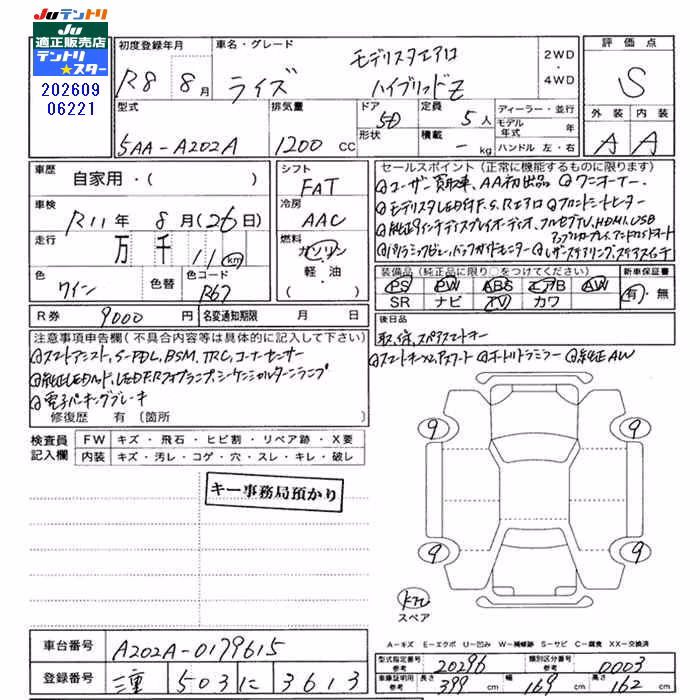 JUテントリ
JU
適正販売店
テントリ
★スター
202609
06221
初度登録年月
R8年8月
車名・グレード
モデリスタエアロ
ライズ ハイブリッドZ
2WD
・
4WD
評価点
S
外装 内装
A A
型式
5AA-A202A
排気量
1200 CC
ドア 5D
形状
定員 5人
積載 - kg
ディーラー・並行
モデル年式 年
ハンドル 左・右
車歴
自家用・( )
車検
R11年8月(26日)
走行
万千11km
色
ワイン
色替
色コード
R67
シフト
FAT
冷房
AAC
燃料
ガソリン
軽・油
( )
セールスポイント(正常に機能するものに限ります)
◎ユーザー買取車、AA初出品 ◎ワンオーナー
◎モデリスタLED付F.S.Rエアロ ◎フロントシートヒーター
◎純正9インチディスプレイオーディオ、フルセグTV、HDMI、USB
アップルカープレイ、アンドロイドオート
◎パノラミックビュー、バックガイドモニター ◎レザーステアリング、ステアスイッチ
装備品(純正品に限り○をつけてください)
PS PW ABS エアB AW
SR ナビ TV カワ
新車保証書
有・無
R券 9000円
名変通知期限 月 日
後日品
取、保、スペアスマートキー
注意事項申告欄(不具合内容等は具体的に記入して下さい)
◎スマートアシスト、S-PDL、BSM、TRC、コーナーセンサー
◎純正LEDヘッド、LED F.Rフォグランプ、シーケンシャルターンランプ
◎電子パーキングブレーキ
修復歴 有(箇所
◎スマートキーx2、Pスタート ◎オートリトラミラー ◎純正AW
検査員
記入欄
FW キズ・飛石・ヒビ割・リペア跡・X要
内装 キズ・汚レ・コゲ・穴・スレ・キレ・破レ
キー事務局預かり
9 9
9 9
スペア
A-キズ E-エクボ U-凹み W-補修跡 S-サビ C-腐食 XX-交換済
車台番号 A202A-0179615
登録番号 三重 503 に 3613
型式指定番号
参考
20296
類別区分番号
参考
0003
車庫証明用
参考
長さ 399 cm
幅 169 cm
高さ 162 cm